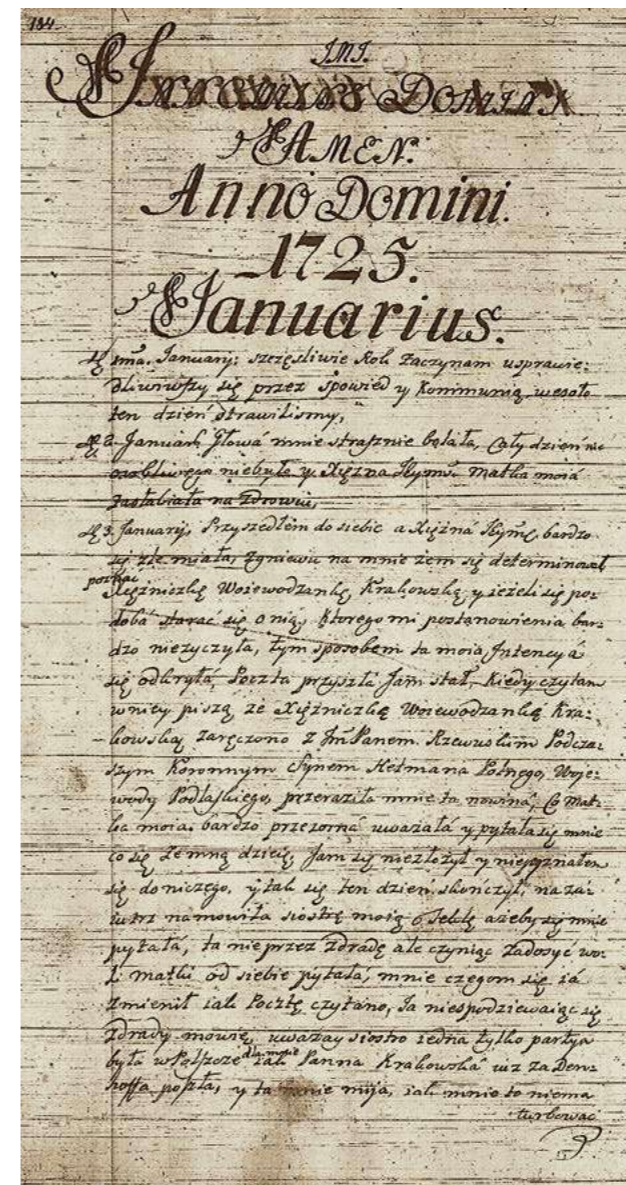 184.
J.M.J.
In Nomine Domini
Amen.
Anno Domini.
1725.
Januarius.
1ma. January; szczęsliwie Rok zaczynam usprawie:
dliwiwszy się przez spowiedz y Kommunią, wesoło
ten dzien strawilismy,
2. January, Głowa mnie strasznie bolała, Cały dzien nic
osobliwego niebyło y Xięzna Jeymć Matka moia
zasłabiała na zdrowiu,
3. January, Przyszedłem do siebie a Xięzna Jeymć bardzo
się zle miała, zgniewu na mnie zem się determinował
poznać
Xięzniczkę Woiewodzankę, Krakowską, y iezeli się po:
doba starać się o nią, Ktorego mi postanowienia bar:
dzo niezyczyła, tym sposobem ta moia Intencya
się odkryła, Poczta przyszła Jam stał, Kiedy czytam
wniey piszą ze Xięzniczkę Woiewodzankę Kra:
kowską zaręczono z Jm Panem Rzewuskim Podcza:
szym Koronnym Synem Hetmana Polnego, Woie:
wody Podlaskiego, przeraziła mnie ta nowina, Co Mat:
ka moia bardzo przezorna uwazała y pytała się mnie
co się ze mną dzieie, Jam się niezłozył y nieprzyznałem
się do niczego, y tak się ten dzien skonczył, na za:
iutrz namowiła siostrę moią azeby się mnie
pytała, ta nie przez zdradę ale czyniąc zadosyć wo:
li matki od siebie pytała, mnie czegom się ia
zmienił iak Pocztę czytano, Ja niespodziewaiąc się
zdrady mowię, uwazay siostro iedna tylko partya
była w Polszcze dla mnie iak Panna Krakowska iuz za Den:
hoffa poszła, y ta mnie mija, iak mnie to niema
turbować